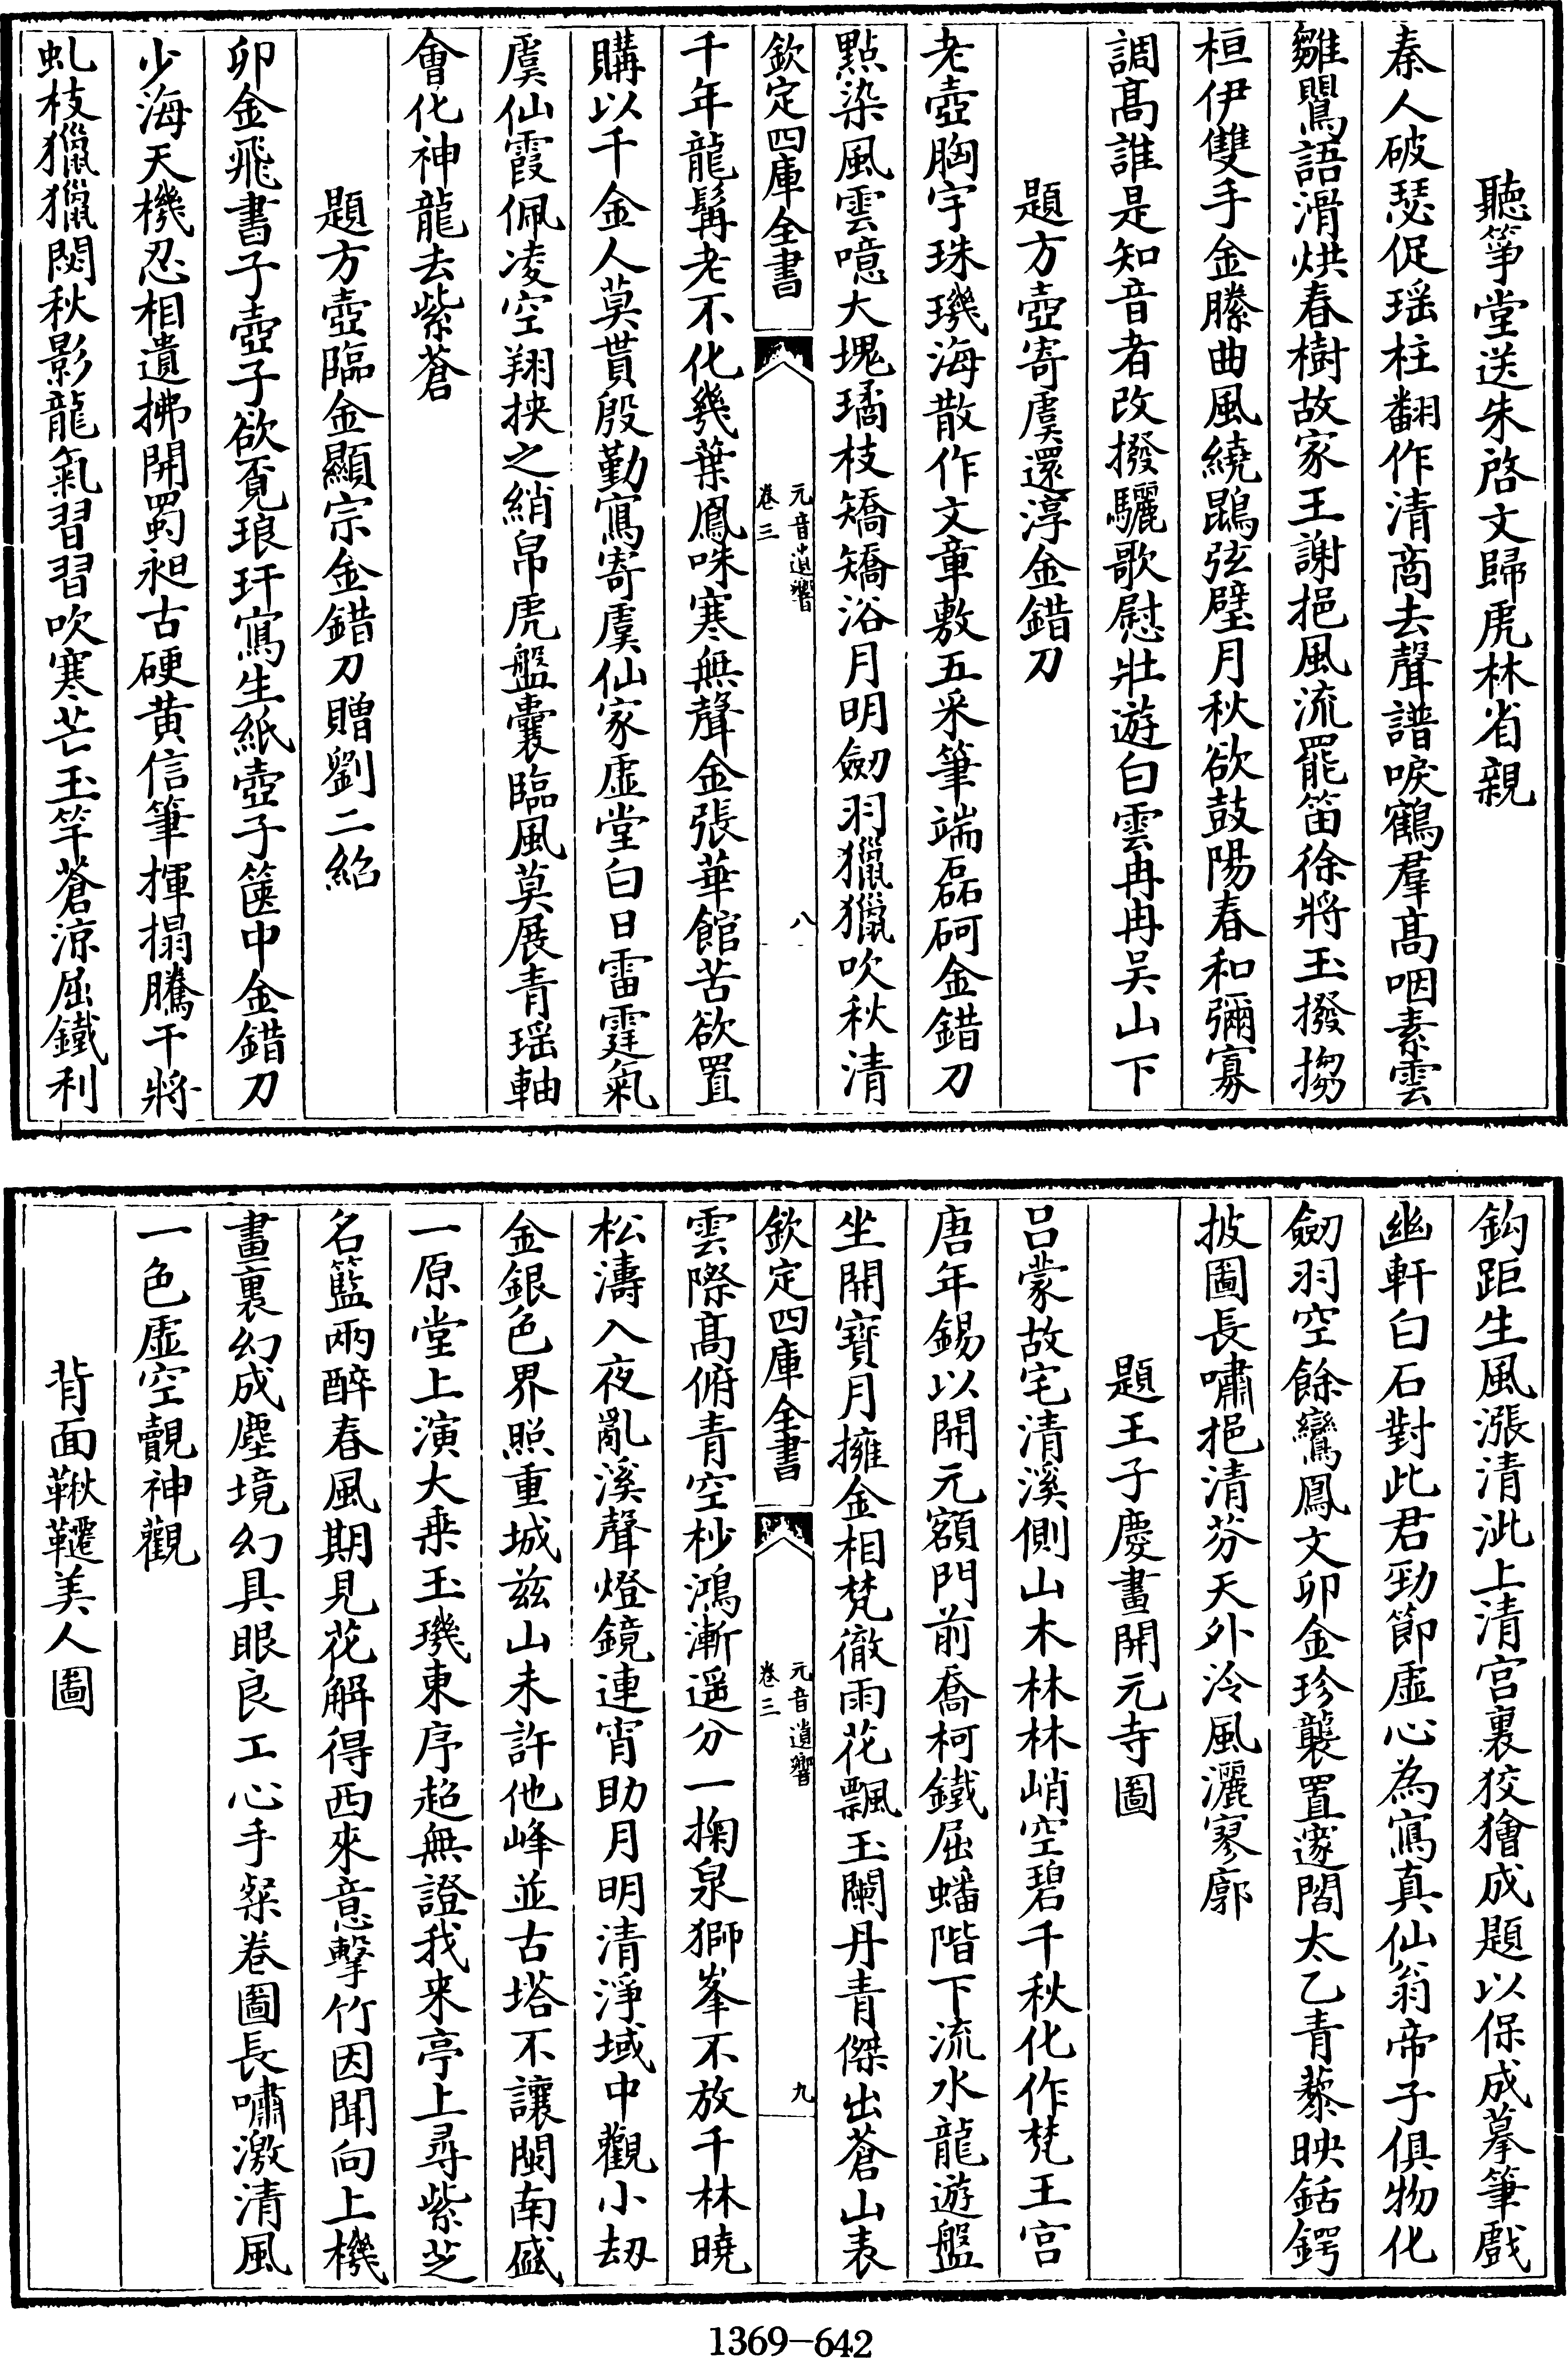 聽箏堂送朱啓文歸虎林省親
秦人破瑟促瑶柱翻作清商去聲譜唳鶴羣髙咽素雲
雛鸎語滑烘春樹故家王謝挹風流罷笛徐將玉撥搊
桓伊雙手金縢曲風繞鵾弦璧月秋欲鼓陽春和彌寡
調髙誰是知音者改撥驪歌慰壯遊白雲冉冉吴山下
題方壺寄虞還淳金錯刀
老壺胸宇珠璣海散作文章敷五采筆端磊砢金錯刀
點染風雲噫大塊璚枝矯矯浴月明劒羽獵獵吹秋清
欽定四庫全書
元音遺響
卷三
八
千年龍髯老不化幾葉鳳咮寒無聲金張華館苦欲置
購以千金人莫貰殷勤寫寄虞仙家虛堂白日雷霆氣
虞仙霞佩凌空翔挾之綃帛虎盤囊臨風莫展青瑶軸
會化神龍去紫蒼
題方壺臨金顯宗金錯刀贈劉二紿
卯金飛書子壺子欲覔琅玕寫生紙壺子篋中金錯刀
少海天機忍相遺拂開蜀昶古硬黄信筆揮搨騰干將
虬枝獵獵閟秋影龍氣習習吹寒芒玉竿蒼涼屈鐵利
鈎距生風漲清泚上清宫裏狡獪成題以保成摹筆戲
幽軒白石對此君勁節虛心為寫真仙翁帝子俱物化
劒羽空餘鸞鳳文卯金珍襲置邃閣太乙青藜映銛鍔
披圖長嘯挹清芬天外泠風灑寥廓
題王子慶畫開元寺圖
吕蒙故宅清溪側山木林林峭空碧千秋化作梵王宫
唐年錫以開元額門前喬柯鐵屈蟠階下流水龍遊盤
坐開寶月擁金相梵徹雨花飄玉闌丹青傑出蒼山表
欽定四庫全書
元音遺響
卷三
九
雲際髙俯青空杪鴻漸遥分一掬泉獅峯不放千林曉
松濤入夜亂溪聲燈鏡連宵助月明清淨域中觀小刼
金銀色界照重城兹山未許他峰並古塔不讓閩南盛
一原堂上演大乗玉璣東序超無證我来亭上尋紫芝
名籃兩醉春風期見花解得西來意擊竹因聞向上機
畫裏幻成塵境幻具眼良工心手粲卷圖長嘯激清風
一色虛空覿神觀
背面鞦韆美人圖
1369-642